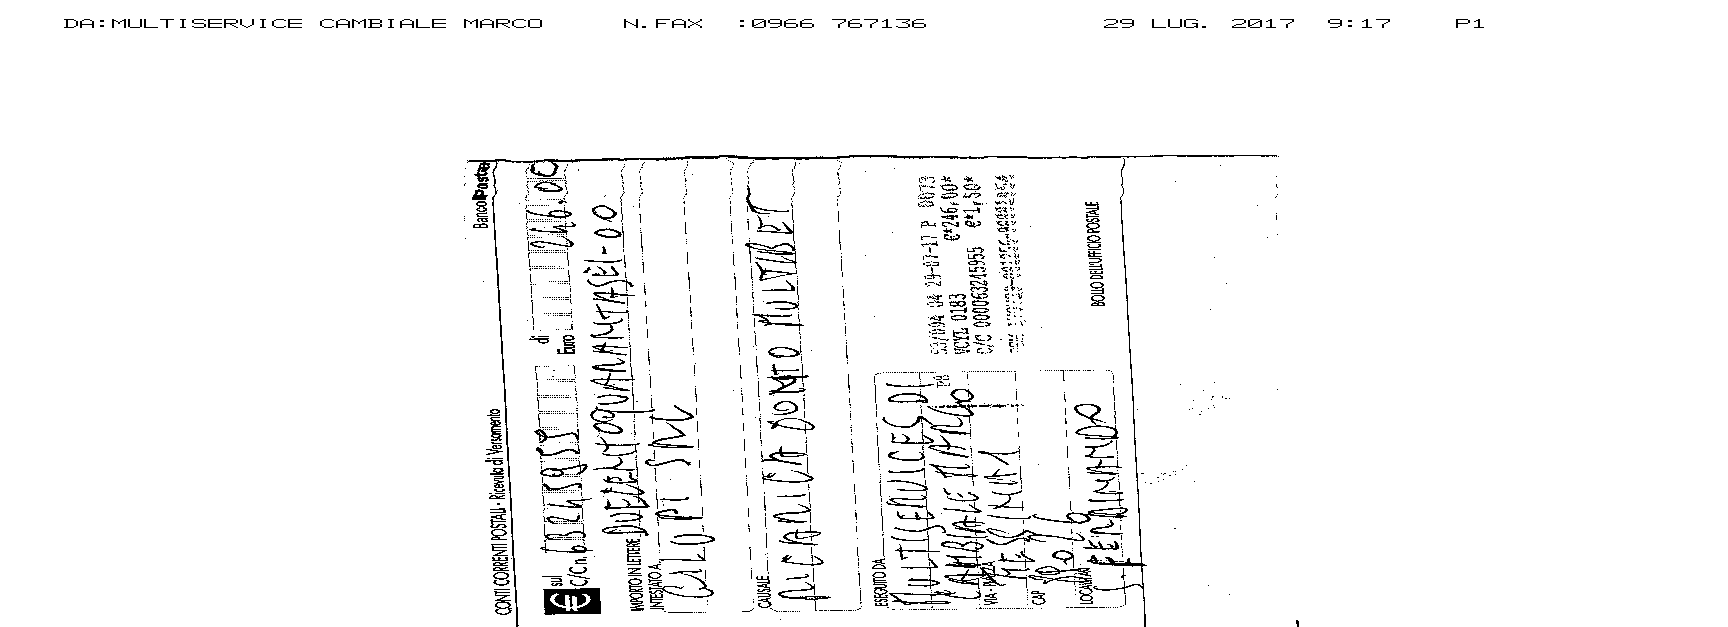 DA:MULTISERVICE CAMBIALE MARCO N.FAX :0966 767136 29 LUG. 2017 9:17 P1
CONTI CORRENTI POSTALI - Ricevuta di Versamento BancoPosta
sul C/C n. 63245955 di Euro 246.00
IMPORTO IN LETTERE DUECENTOQUARANTASEI-00
INTESTATO A
SRL
CAUSALE
RICARICA CONTO MULTIBET
ESEGUITO DA
MULTISERVICES DI
CAMBIALE MARCO
VIA - PIAZZA
CAP
LOCALITÀ
S FERDINANDO
04 29-07-17 P
VCYL 0183 €*246,00*
C/C 000063245955 €*1,50*
BOLLO DELL'UFFICIO POSTALE